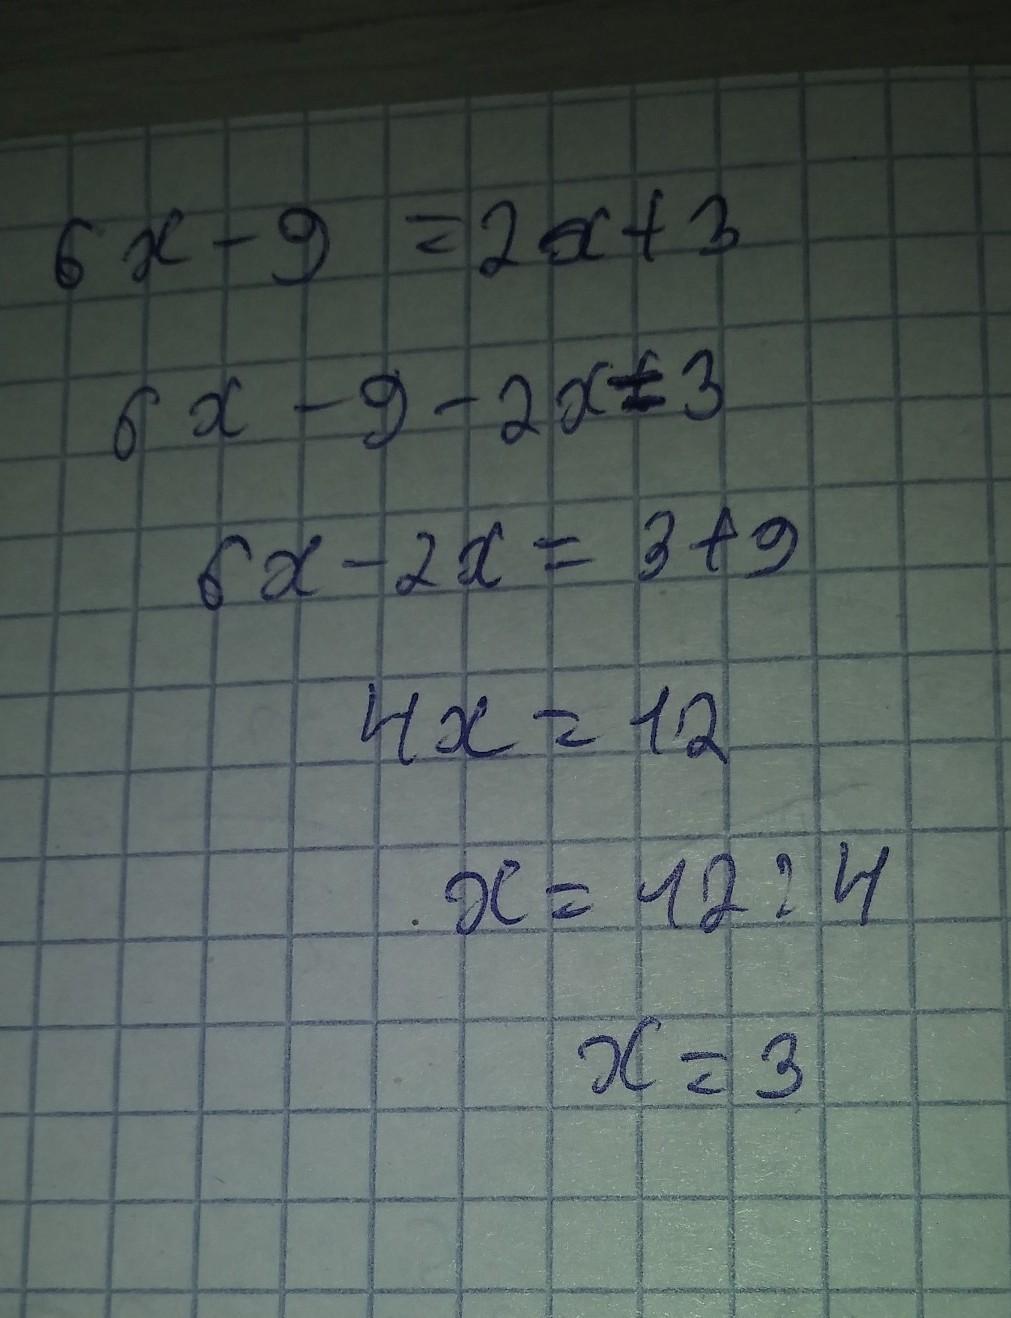 6x - 9 = 2x + 3
6x - 9 - 2x = 3
6x - 2x = 3 + 9
4x = 12
x = 12 : 4
x = 3